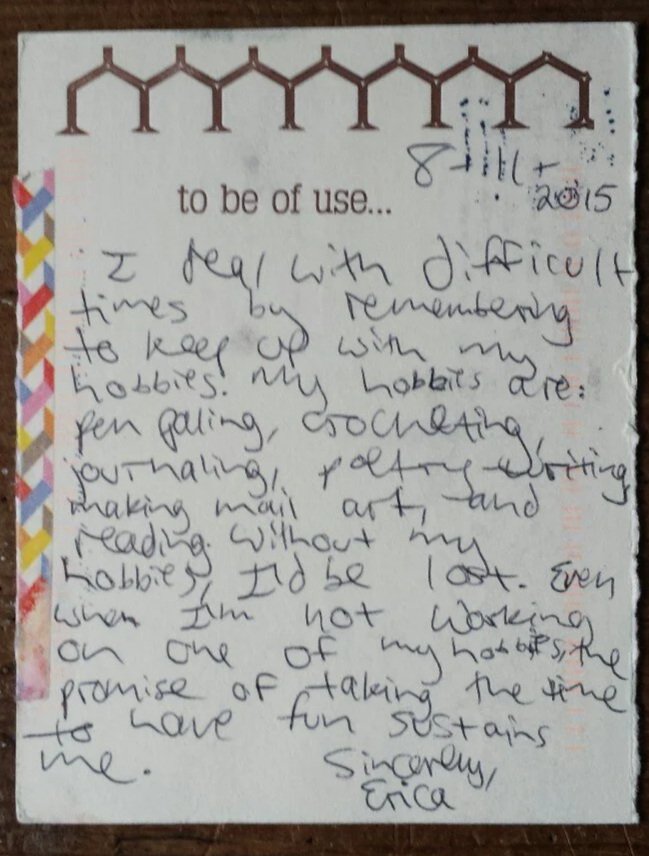 8+11+
2015
to be of use...
I deal with difficult
times by remembering
to keep up with my
hobbies. My hobbies are:
pen paling, crocheting,
journaling, poetry writing,
making mail art, and
reading. Without my
hobbies, I'd be lost. Even
when I'm not working
on one of my hobbies, the
promise of taking the time
to have fun sustains
me.
Sincerely,
Erica